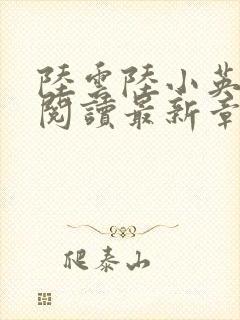 陸雲陸小英
閱讀最新章
爬泰山